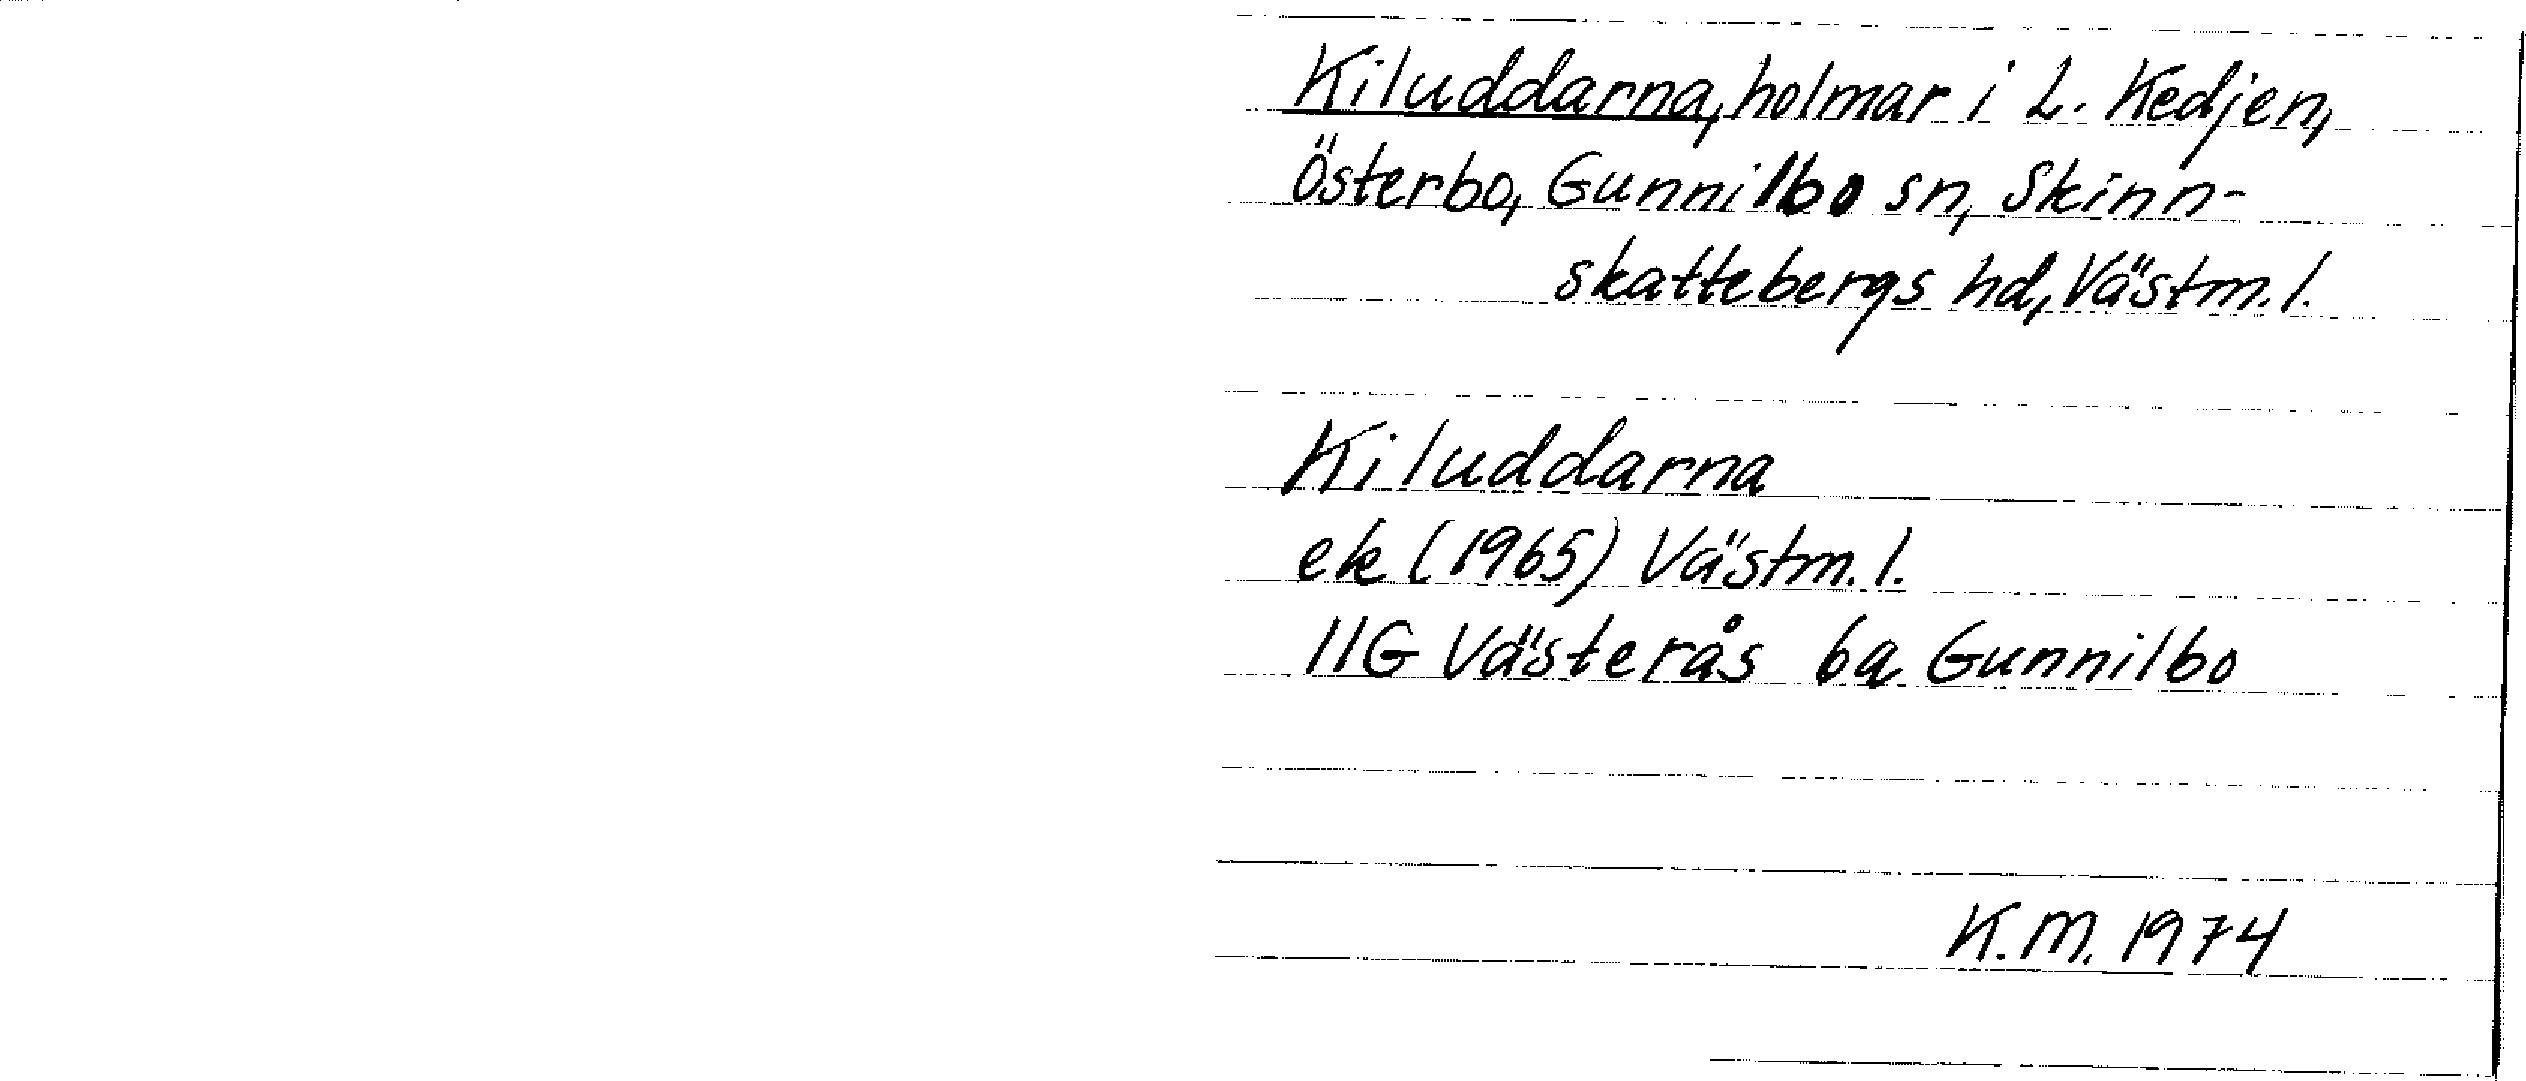 Kiluddarna, holmar i L. Kedjen,
Österbo, Gunnilbo sn, Skinn-
skattebergs hd, Västm. l.
Kiluddarna
ek (1965) Västm. l.
11G Västerås 6a Gunnilbo
K.M. 1974